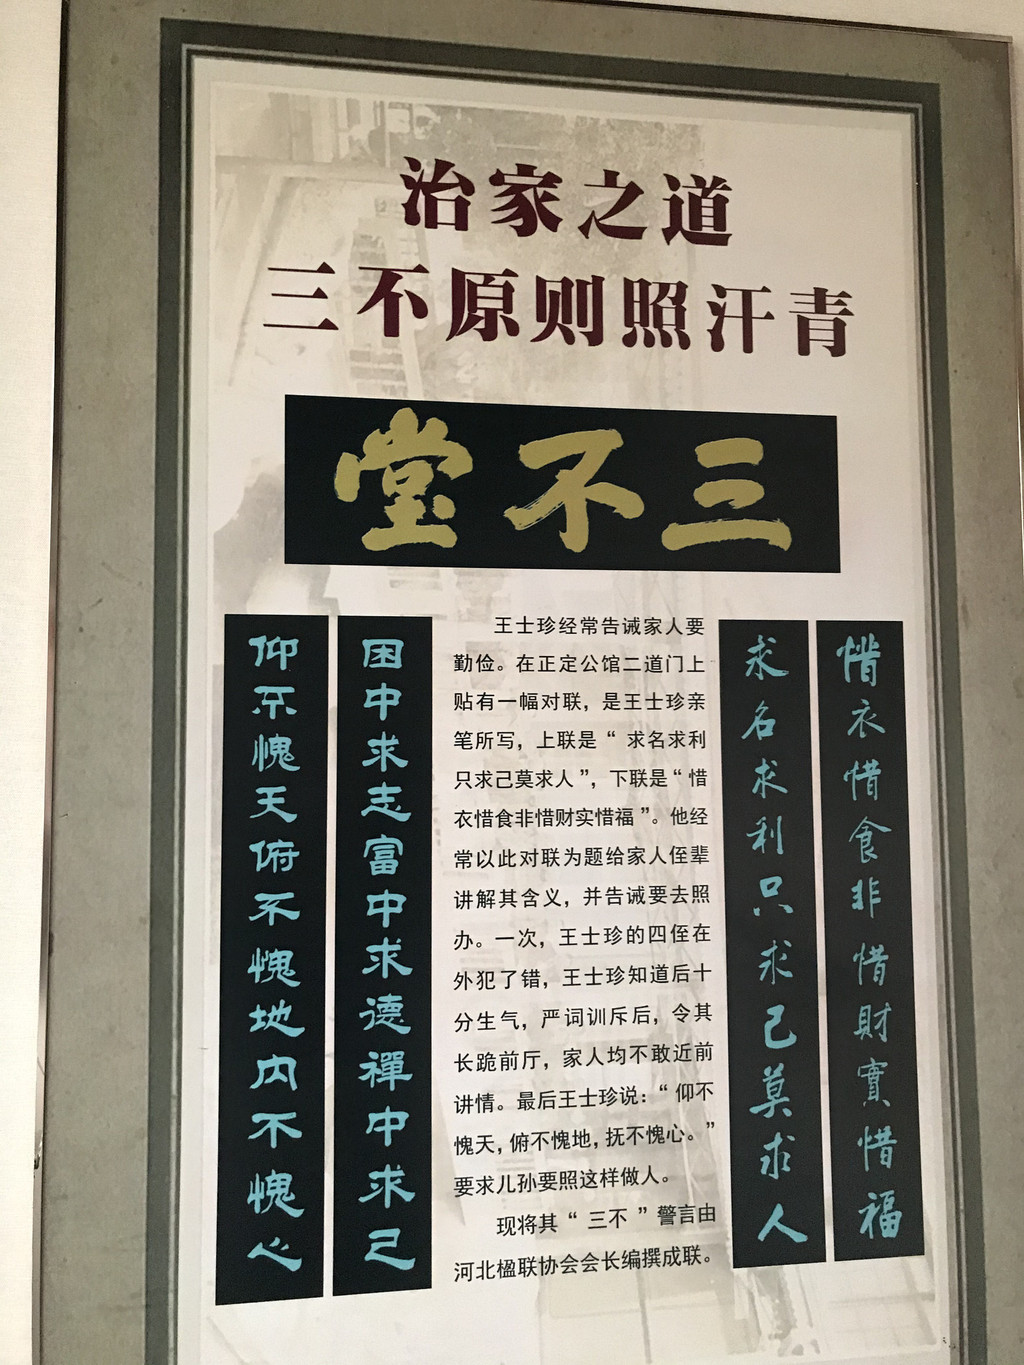 治家之道
三不原则照汗青
堂不三
仰不愧天俯不愧地内不愧心
困中求志富中求德禅中求己
王士珍经常告诫家人要
勤俭。在正定公馆二道门上
贴有一幅对联，是王士珍亲
笔所写，上联是“求名求利
只求己莫求人”，下联是“惜
衣惜食非惜财实惜福”。他经
常以此对联为题给家人侄辈
讲解其含义，并告诫要去照
办。一次，王士珍的四侄在
外犯了错，王士珍知道后十
分生气，严词训斥后，令其
长跪前厅，家人均不敢近前
讲情。最后王士珍说：“仰不
愧天，俯不愧地，抚不愧心。”
要求儿孙要照这样做人。
现将其“三不”警言由
河北楹联协会会长编撰成联。
求名求利只求己莫求人
惜衣惜食非惜財實惜福